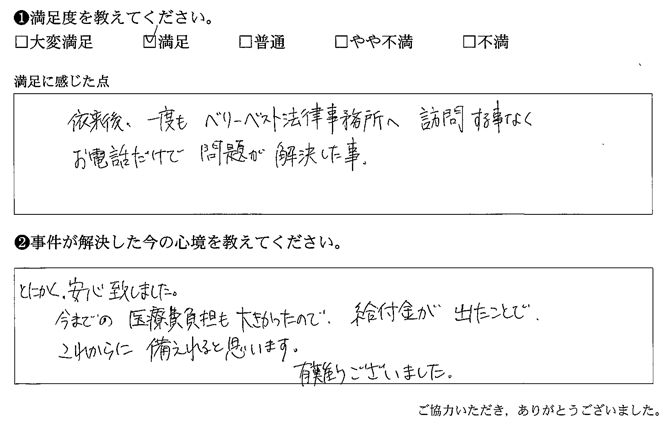 ❶満足度を教えてください。
□大変満足 ☑満足 □普通 □やや不満 □不満
満足に感じた点
依来後、一度も ベリーベスト法律事務所へ 訪問する事なく
お電話だけで 問題が 解決した事。
❷事件が解決した今の心境を教えてください。
とにかく、安心致しました。
今までの 医療費負担も 大きかったので、給付金が 出たことで、
これからに 備えれると思います。
有難うございました。
ご協力いただき，ありがとうございました。